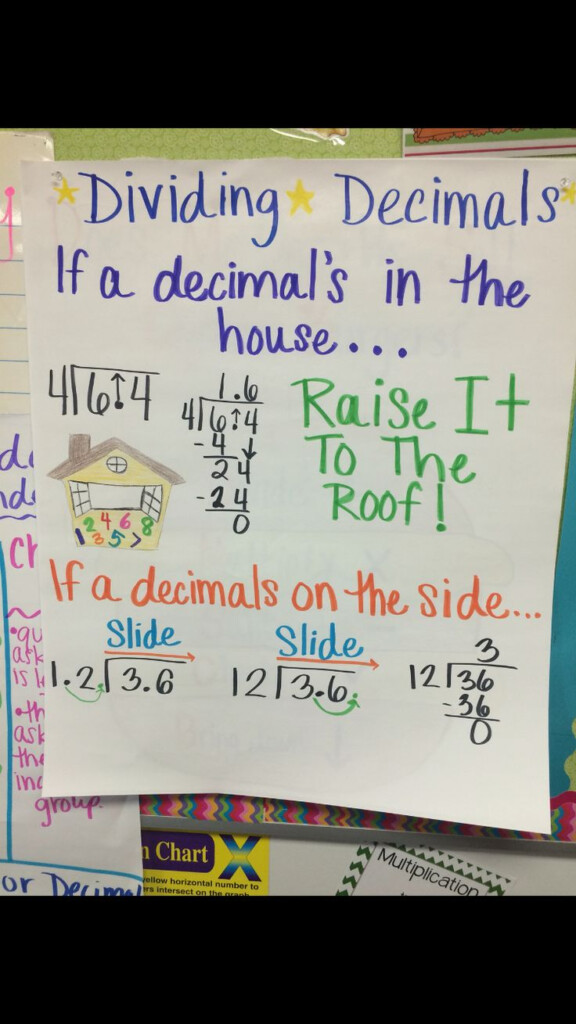 Dividing Decimals
If a decimal's in the
house...
4 6.4
1.6
4 6.4
- 4
24
- 24
0
Raise It
To The
Roof!
2 4 6 8
1 3 5 7
If a decimals on the side...
Slide
1.2 3.6
Slide
12 3.6.
3
12 36
- 36
0
ask
is
ask
the
group.
Chart X
yellow horizontal number to
ers intersect on the graph
Multiplication
or Decimal